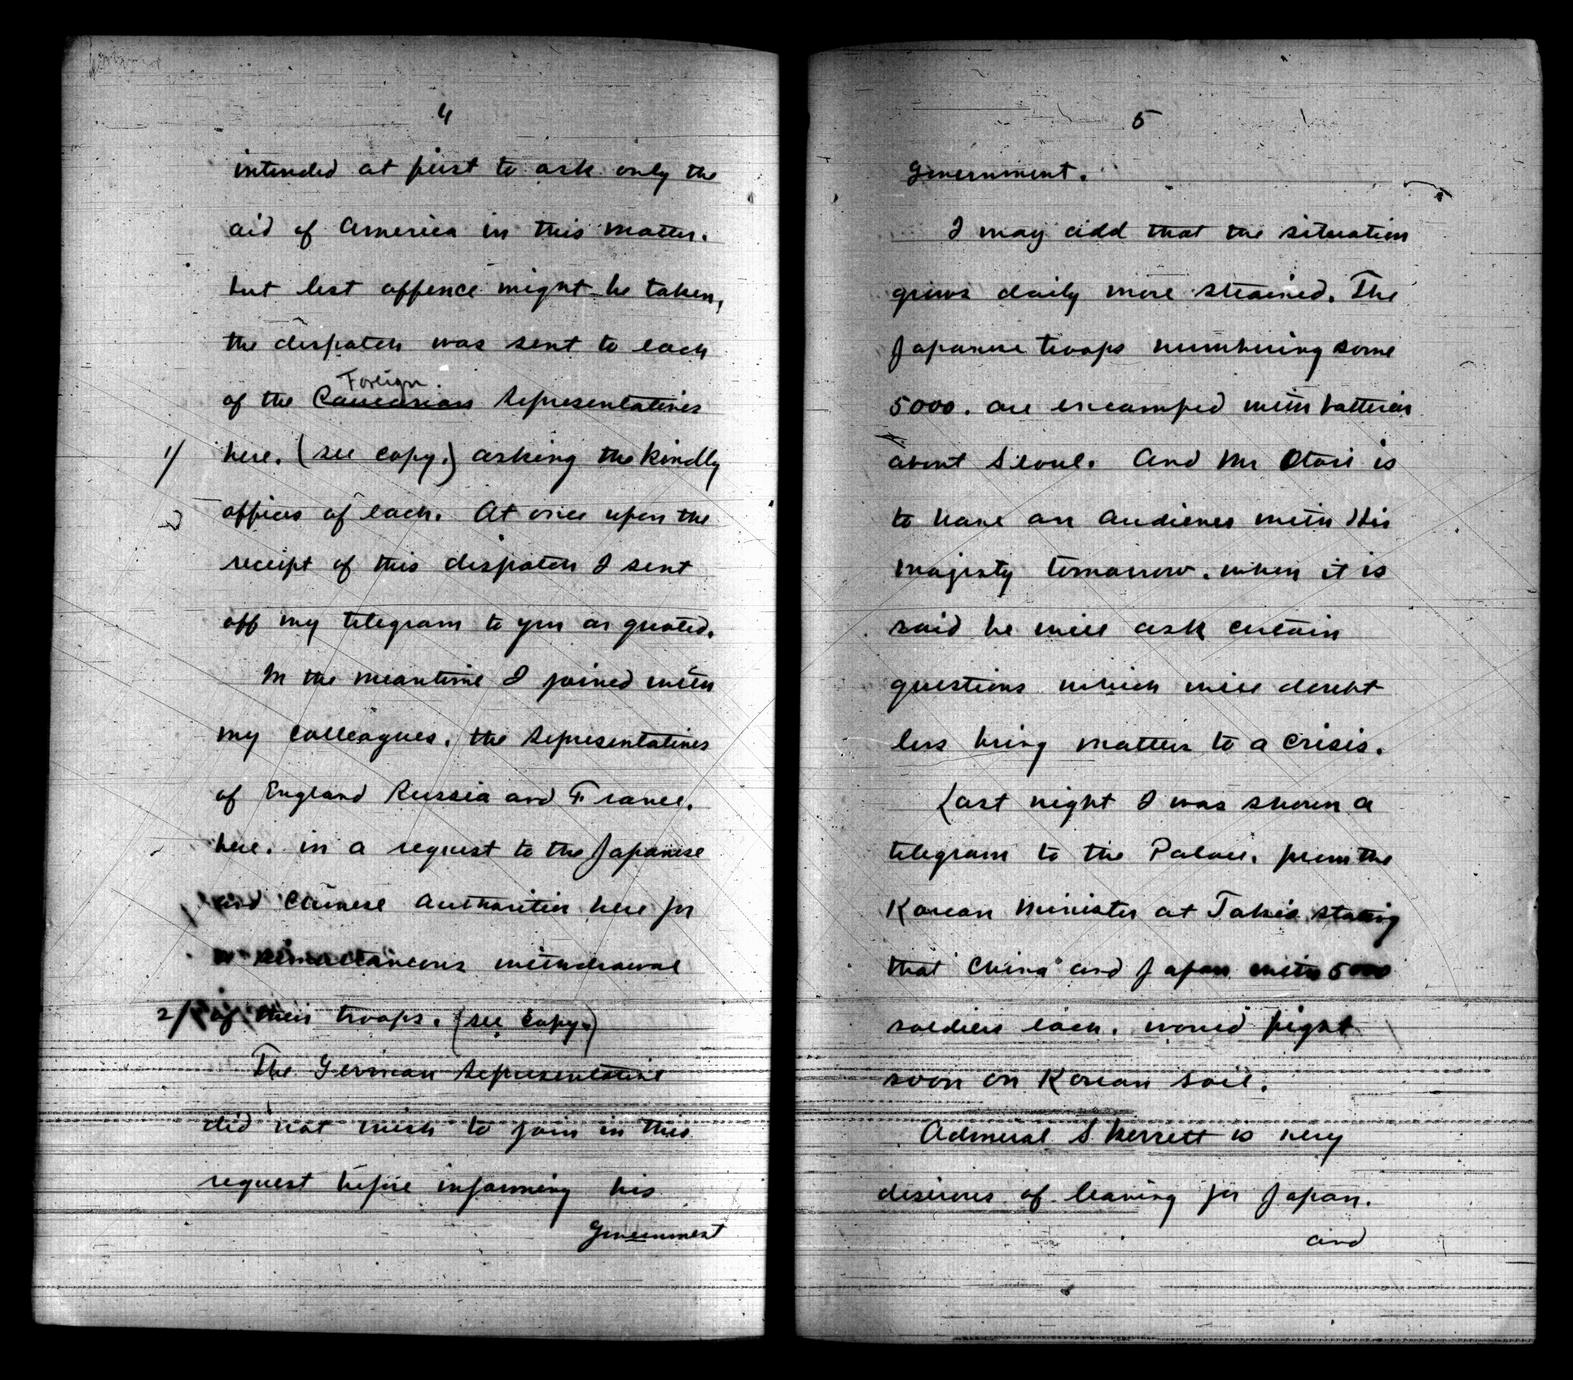 4
intended at first to ask only the
aid of America in this matter.
but lest offence might be taken,
the dispatch was sent to each
Foreign
of the Caucasian Representatives
1/ here. (see copy.) asking the kindly
offices of each. At once upon the
receipt of this dispatch I sent
off my telegram to you as quoted.
In the meantime I joined with
my colleagues, the Representatives
of England Russia and France.
here. in a request to the Japanese
and Chinese Authorities here for
a simultaneous withdrawal
2/ of their troops. (see copy.)
The German Representative
did not wish to join in this
request before informing his
Government
5
Government.
I may add that the situation
grows daily more strained. The
Japanese troops numbering some
5000. are encamped with batteries
about Seoul. And Mr Otori is
to have an audience with His
Majesty tomorrow. when it is
said he will ask certain
questions which will doubt
less bring matters to a crisis.
Last night I was shown a
telegram to the Palace. from the
Korean Minister at Tokio stating
that China and Japan with 5000
soldiers each. would fight
soon on Korean soil.
Admiral Skerrett is very
desirous of leaving for Japan.
and